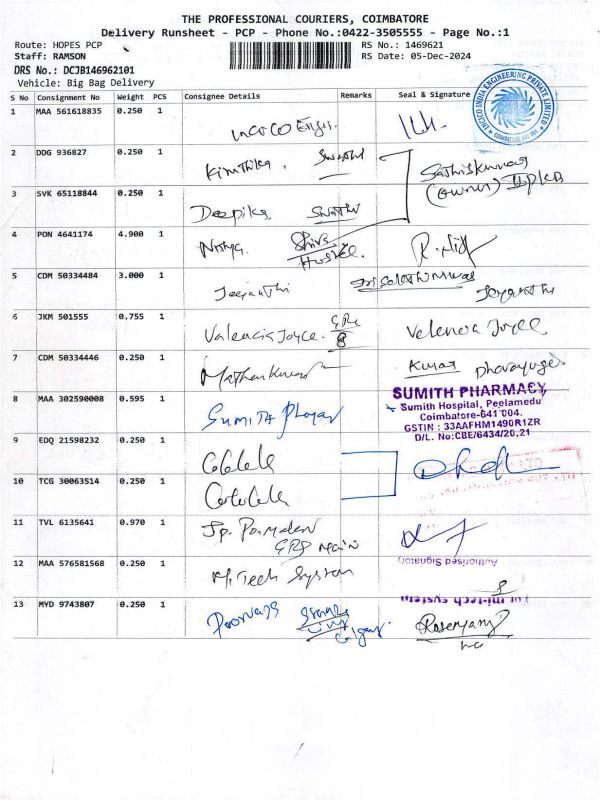 THE PROFESSIONAL COURIERS, COIMBATORE
Delivery Runsheet - PCP - Phone No.:0422-3505555 - Page No.:1
Route: HOPES PCP RS No.: 1469621
Staff: RAMSON RS Date: 05-Dec-2024
DRS No.: DCJB146962101
Vehicle: Big Bag Delivery
S No Consignment No Weight PCS Consignee Details Remarks Seal & Signature
INCICO INDIA ENGINEERING PRIVATE LIMITED
1 MAA 561618835 0.250 1
2 DDG 936827 0.250 1 Kiruthika. Swathi
(owner)
3 SVK 65118844 0.250 1 Deepika Swathi
4 PON 4641174 4.900 1 Nithya. Shiva
Hostel.
5 CDM 50334484 3.000 1 Jeyanthi Jeyanthi
6 JKM 501555 0.755 1 Valencia Joyce. Valencia Joyce
7 CDM 50334446 0.250 1 Mathankumar Kumar
8 MAA 302590008 0.595 1 SUMITH
SUMITH PHARMACY
Sumith Hospital, Peelamedu
Coimbatore-641 004.
GSTIN : 33AAFHM1490R1ZR
D/L. No:CBE/6434/20,21
9 EDQ 21598232 0.250 1
10 TCG 30063514 0.250 1
11 TVL 6135641 0.970 1 Jp.
Main
Authorised Signatory
12 MAA 576581568 0.250 1 Hi Tech System
For mi-tech system
13 MYD 9743807 0.250 1